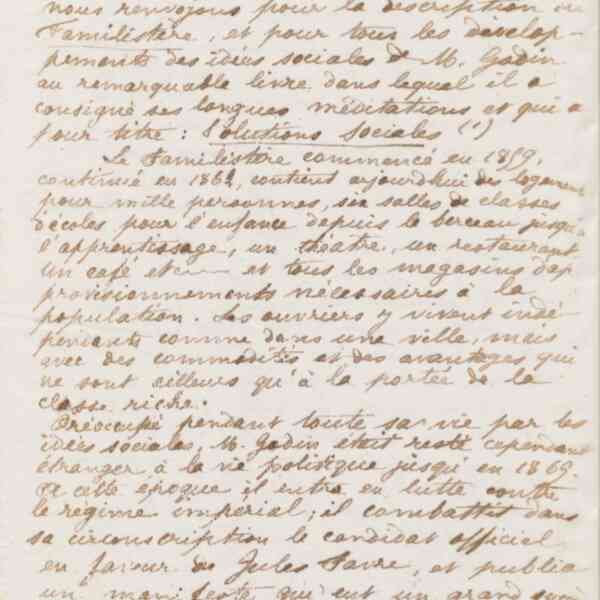 nous renvoyons pour la description du
Familistère, et pour tous les dévelop-
pements des idées sociales de M. Godin
au remarquable livre dans lequel il a
consigné ses longues méditations et qui a
pour titre : Solutions Sociales (1)
Le Familistère commencé en 1859,
continué en 1862, contient aujourdhui des logements
pour mille personnes, six salles de classes
d'écoles pour l'enfance depuis le berceau jusqu'à
l'apprentissage, un théatre, un restaurant
un café etc et tous les magasins d'ap
provisionnements nécessaires à la
population. Les ouvriers y vivent indé-
pendants comme dans une ville, mais
avec des commodités et des avantages qui
ne sont ailleurs qu'à la portée de la
classe riche.
Préoccupé pendant toute sa vie par les
idées sociales, M. Godin était resté cependant
étranger à la vie politique jusqu'en 1869.
A cette époque il entra en lutte contre
le régime impérial ; il combattit dans
sa circonscription le candidat officiel
en faveur de Jules Favre, et publia
un manifeste qui eut un grand